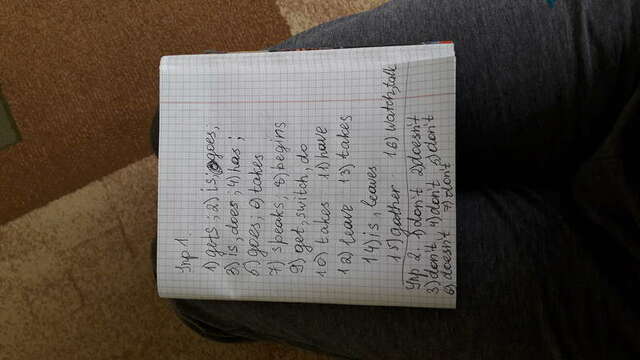 Упр 1.
1) gets; 2) is; goes,
3) is, does; 4) has;
5) goes; 6) takes
7) speaks; 8) begins
9) get, switch, do
10) takes 11) have
12) leave 13) takes
14) is, leaves
15) gather 16) watch, talk
Упр 2. 1) don't 2) doesn't
3) don't 4) don't 5) don't
6) doesn't 7) don't